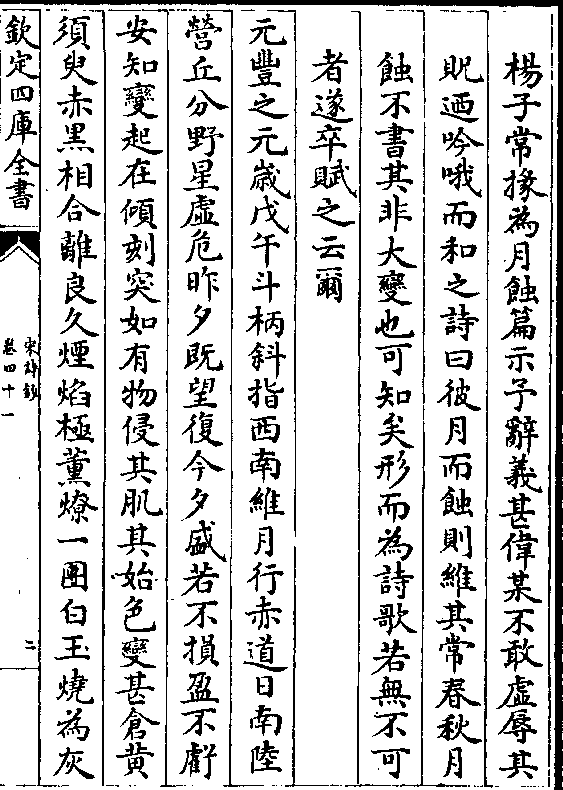 楊子常掾為月蝕篇示予辭義甚偉某不敢虛辱其
貺迺吟哦而和之詩曰彼月而蝕則維其常春秋月
蝕不書其非大變也可知矣形而為詩歌若無不可
者遂卒賦之云爾
元豐之元歲戊午斗柄斜指西南維月行赤道日南陸
營丘分野星虛危昨夕既望復今夕盛若不損盈不虧
安知變起在傾刻突如有物侵其肌其始色變甚倉黄
須臾赤黑相合離良久煙焰極薰燎一團白玉燒為灰
欽定四庫全書
宋詩鈔
卷四十一
二